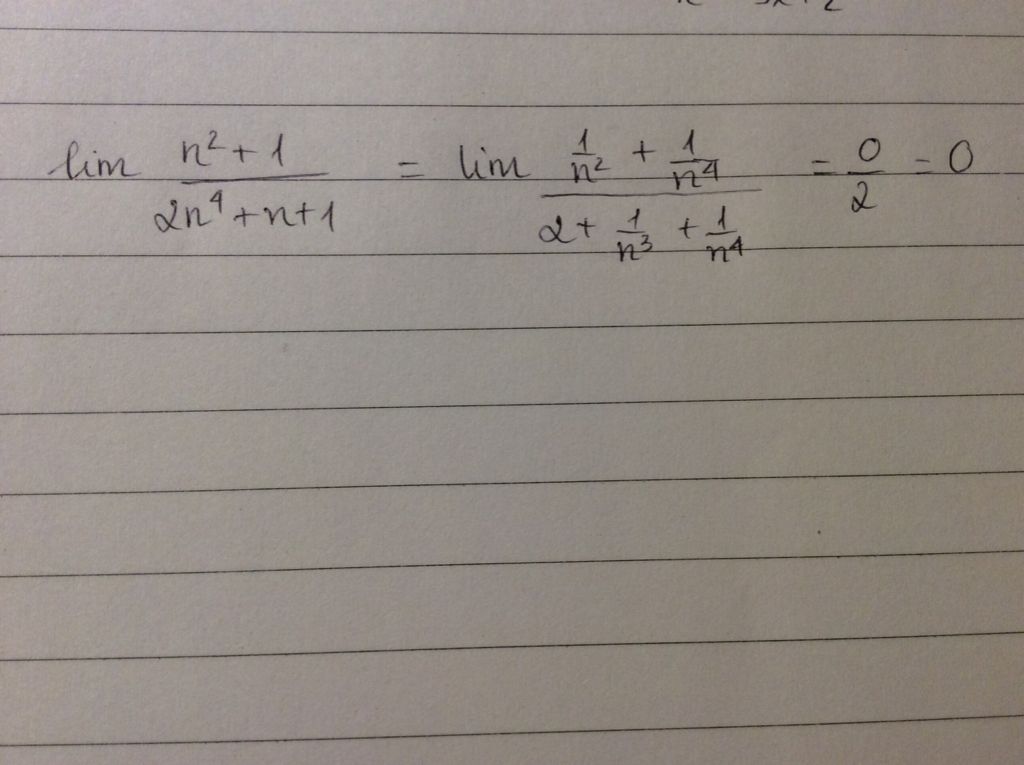 lim (n² + 1)/(2n⁴ + n + 1) = lim (1/n² + 1/n⁴)/(2 + 1/n³ + 1/n⁴) = 0/2 = 0